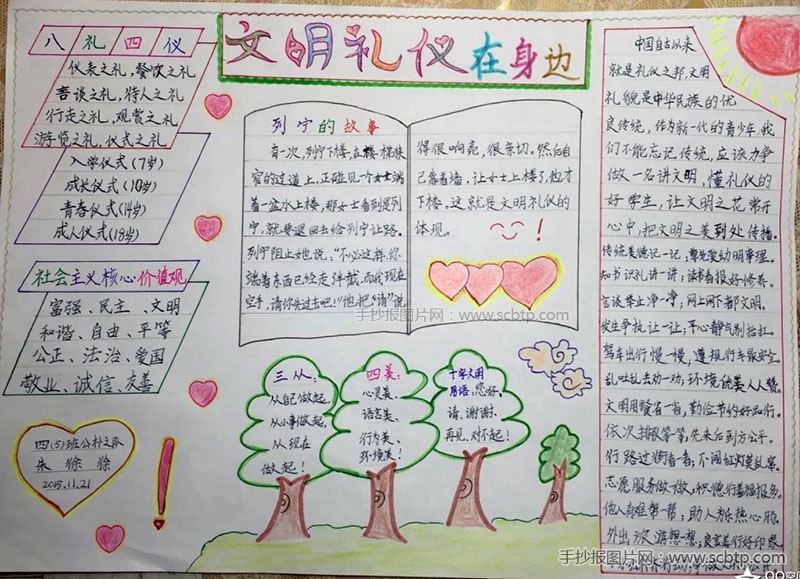 文明礼仪在身边
八礼四仪
仪表之礼,餐饮之礼
言谈之礼,待人之礼
行走之礼,观赏之礼
游览之礼,仪式之礼
入学仪式(7岁)
成长仪式(10岁)
青春仪式(14岁)
成人仪式(18岁)
社会主义核心价值观
富强、民主、文明
和谐、自由、平等
公正、法治、爱国
敬业、诚信、友善
四(5)班公朴之队
朱徐徐
2015.11.21
列宁的故事
有一次,列宁下楼,在楼梯狭
窄的过道上,正碰见一个女士端
着一盆水上楼,那女士看到是列
宁,就要退回去给列宁让路。
列宁阻止她说:“不必这样,你
端着东西已经走半截,而我现在
空手,请你先过去吧!”他把“请”说
得很响亮,很亲切。然后自
己靠着墙,让女士上楼了,他才
下楼。这就是文明礼仪的
体现。
!
三从:
从自己做起,
从小事做起,
从现在
做起!
四美:
心灵美、
语言美、
行为美、
环境美!
十字文明
用语:您好、
请、谢谢、
再见、对不起!
中国自古以来
就是礼仪之邦,文明
礼貌是中华民族的优
良传统,作为新一代的青少年,我
们不能忘记传统,应该力争
做一名讲文明,懂礼仪的
好学生,让文明之花常开
心中,把文明之美到处传播。
传统美德记一记;尊老爱幼明事理。
知书识礼讲一讲;读书看报好修养。
言谈举止净一净,网上网下都文明。
发生争执让一让;平心静气别抬杠。
驾车出行慢一慢,遵规行车最安全。
乱吐乱丢劝一劝;环境优美人人赞。
文明用餐省一省,勤俭节约好品行。
依次排队等一等,先来后到方公平。
行路过街看一看;不闯红灯莫乱窜。
志愿服务做一做;积德行善福报多。
他人有难帮一帮;助人为乐热心肠。
外出旅游想一想;良言善行好印象
手抄报图片网:www.scbtp.com
手抄报图片网:www.scbtp.com